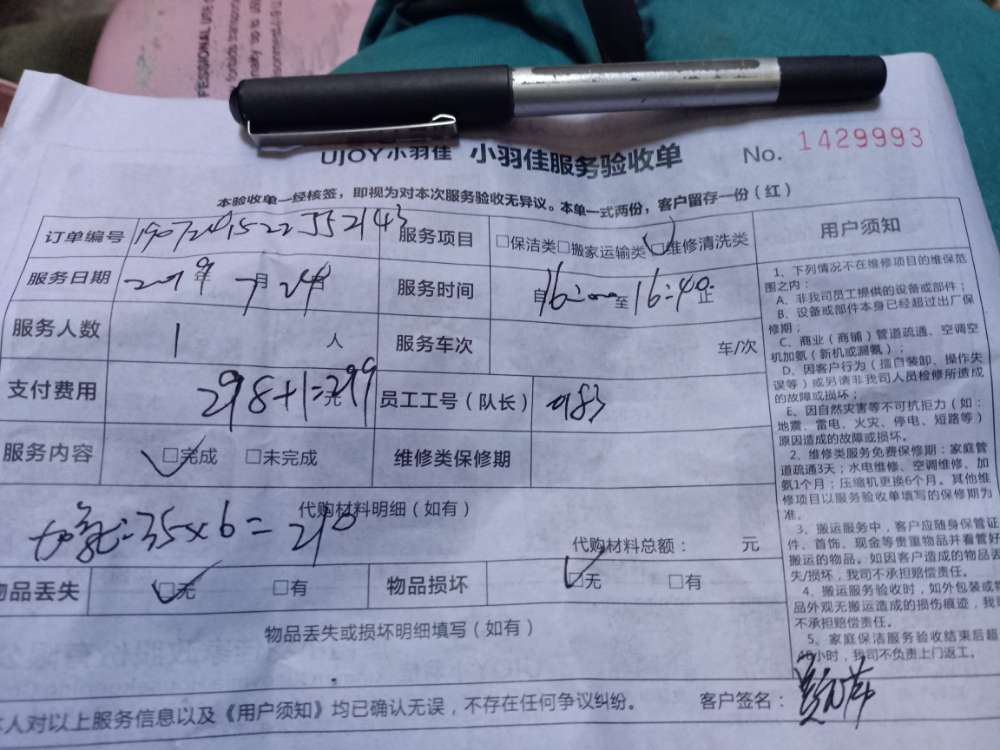 FESSIONAL
UJOY小羽佳 小羽佳服务验收单 No. 1429993
本验收单一经核签，即视为对本次服务验收无异议。本单一式两份，客户留存一份（红）
订单编号 服务项目 □保洁类□搬家运输类□维修清洗类
服务日期 2019年7月24日 服务时间 自16:00至16:40止
服务人数 1人 服务车次 车/次
支付费用 298+1=299元 员工工号（队长） 083
服务内容 □完成 □未完成 维修类保修期
代购材料明细（如有）
35×6=210
代购材料总额： 元
物品丢失 □无 □有 物品损坏 □无 □有
物品丢失或损坏明细填写（如有）
本人对以上服务信息以及《用户须知》均已确认无误，不存在任何争议纠纷。 客户签名：
用户须知
1、下列情况不在维修项目的维保范
围之内：
A、非我司员工提供的设备或部件；
B、设备或部件本身已经超过出厂保
修期；
C、商业（商铺）管道疏通、空调空
机加氨（新机或漏氨）；
D、因客户行为（擅自装卸、操作失
误等）或另请非我司人员检修所造成
的故障或损坏；
E、因自然灾害等不可抗拒力（如：
地震、雷电、火灾、停电、短路等）
原因造成的故障或损坏。
2、维修类服务免费保修期：家庭管
道疏通3天；水电维修、空调维修、加
氨1个月；压缩机更换6个月。其他维
修项目以服务验收单填写的保修期为
准。
3、搬运服务中，客户应随身保管证
件、首饰、现金等贵重物品并看管好
搬运的物品。如因客户造成的物品丢
失/损坏，我司不承担赔偿责任。
4、搬运服务验收时，如外包装或物
品外观无搬运造成的损伤痕迹，我司
不承担赔偿责任。
5、家庭保洁服务验收结束后超
48小时，我司不负责上门返工。